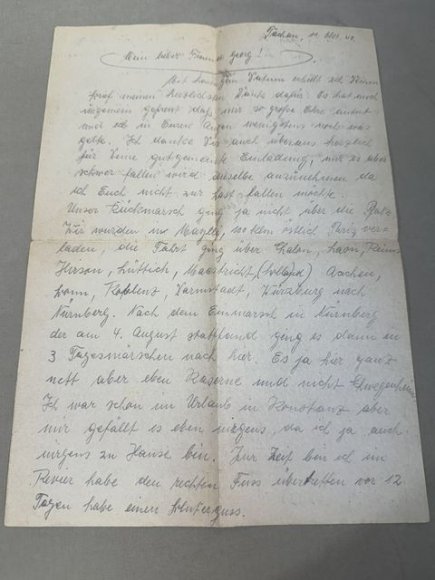 Tachau, 11. Okt. 40
Mein lieber Freund Georg!
Mit heutigem Datum erhielt ich Deinen
Brief meinen herzlichsten Dank dafür. Es hat mich
ungemein gefreut daß mir so große Ehre
und ich in Euren Augen wenigstens noch was
gelte. Ich danke Dir auch überaus herzlich
für Deine gutgemeinte Einladung, nur es aber
schwer fallen wird dieselbe anzunehmen da
ich Euch nicht zur Last fallen möchte.
Unser Rückmarsch ging ja nicht über die Pfalz
Wir wurden in 60 klm östlich Paris ver-
laden, die Fahrt ging über Chalon, Laon, Reims
Hirson, Lüttich, Maastricht (Holland) Aachen,
Bonn, Koblenz, Darmstadt, Würzburg nach
Nürnberg. Nach dem Einmarsch in Nürnberg
der am 4. August stattfand ging es dann in
3 Tagesmärschen nach hier. Es ja hier ganz
nett aber eben Kaserne und nicht
Ich war schon im Urlaub in Konstanz aber
mir gefällt es eben nirgens, da ich ja auch
nirgens zu Hause bin. Zur Zeit bin ich im
Revier habe den rechten Fuss übertretten vor 12
Tagen habe einen Bluterguss.